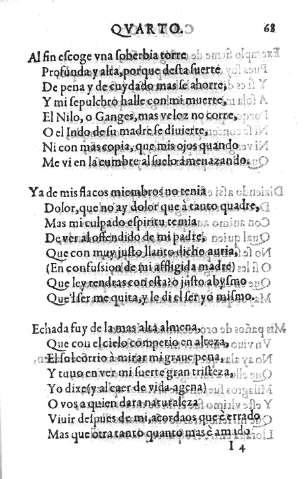 QVARTO. 68
Al fin escoge vna soberbia torre
Profunda y alta, porque desta suerte
De pena y de cuydado mas se ahorre,
Y mi sepulchro halle con mi muerte,
El Nilo, o Ganges, mas veloz no corre,
O el Indo de su madre se diuierte,
Ni con mas copia, que mis ojos quando
Me vi en la cumbre al suelo amenazando.
Ya de mis flacos miembros no tenia
Dolor, que no ay dolor que à tanto quadre,
Mas mi culpado espiritu temia
De ver al offendido de mi padre,
Que con muy justo llanto dicho auria,
(En confusion de mi affligida madre)
Que ley rendtas con justo abysmo
Que l ser me quita, y le di el ser yo mismo.
Echada fuy de la mas alta almena,
Que con el cielo competio en alteza,
El solcorrio à mirar mi graue pena,
Y tuuo en ver mi suerte gran tristeza,
Yo dixe (y al caer de vida agena)
O vos a quien dara naturaleza
Viuir despues de mi, acordaos que errado
Mas que otra tanto quanto mas è amado
I 4